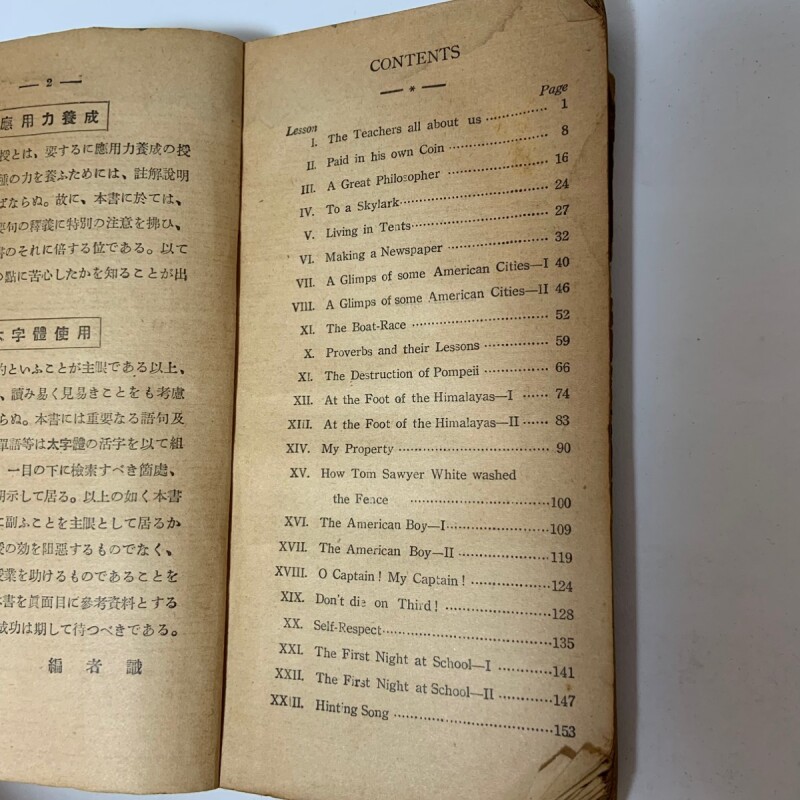 — 2 —
應用力養成
授とは、要するに應用力養成の授
種の力を養ふためには、註解說明
ばならぬ。故に、本書に於ては、
要句の釋義に特別の注意を拂ひ、
書のそれに倍する位である。以て
の點に苦心したかを知ることが出
太字體使用
的といふことが主眼である以上、
、讀み易く見易きことをも考慮
らぬ。本書には重要なる語句及
單語等は太字體の活字を以て組
一目の下に檢索すべき箇處、
明示して居る。以上の如く本書
に副ふことを主眼として居るか
授の効を阻惡するものでなく、
授業を助けるものであることを
本書を眞面目に參考資料とする
成功は期して待つべきである。
編者識
CONTENTS
— * —
Lesson Page
I. The Teachers all about us 1
II. Paid in his own Coin 8
III. A Great Philosopher 16
IV. To a Skylark 24
V. Living in Tents 27
VI. Making a Newspaper 32
VII. A Glimps of some American Cities—I 40
VIII. A Glimps of some American Cities—II 46
XI. The Boat-Race 52
X. Proverbs and their Lessons 59
XI. The Destruction of Pompeii 66
XII. At the Foot of the Himalayas—I 74
XIII. At the Foot of the Himalayas—II 83
XIV. My Property 90
XV. How Tom Sawyer White washed
the Fence 100
XVI. The American Boy—I 109
XVII. The American Boy—II 119
XVIII. O Captain! My Captain! 124
XIX. Don't die on Third! 128
XX. Self-Respect 135
XXI. The First Night at School—I 141
XXII. The First Night at School—II 147
XXIII. Hinting Song 153